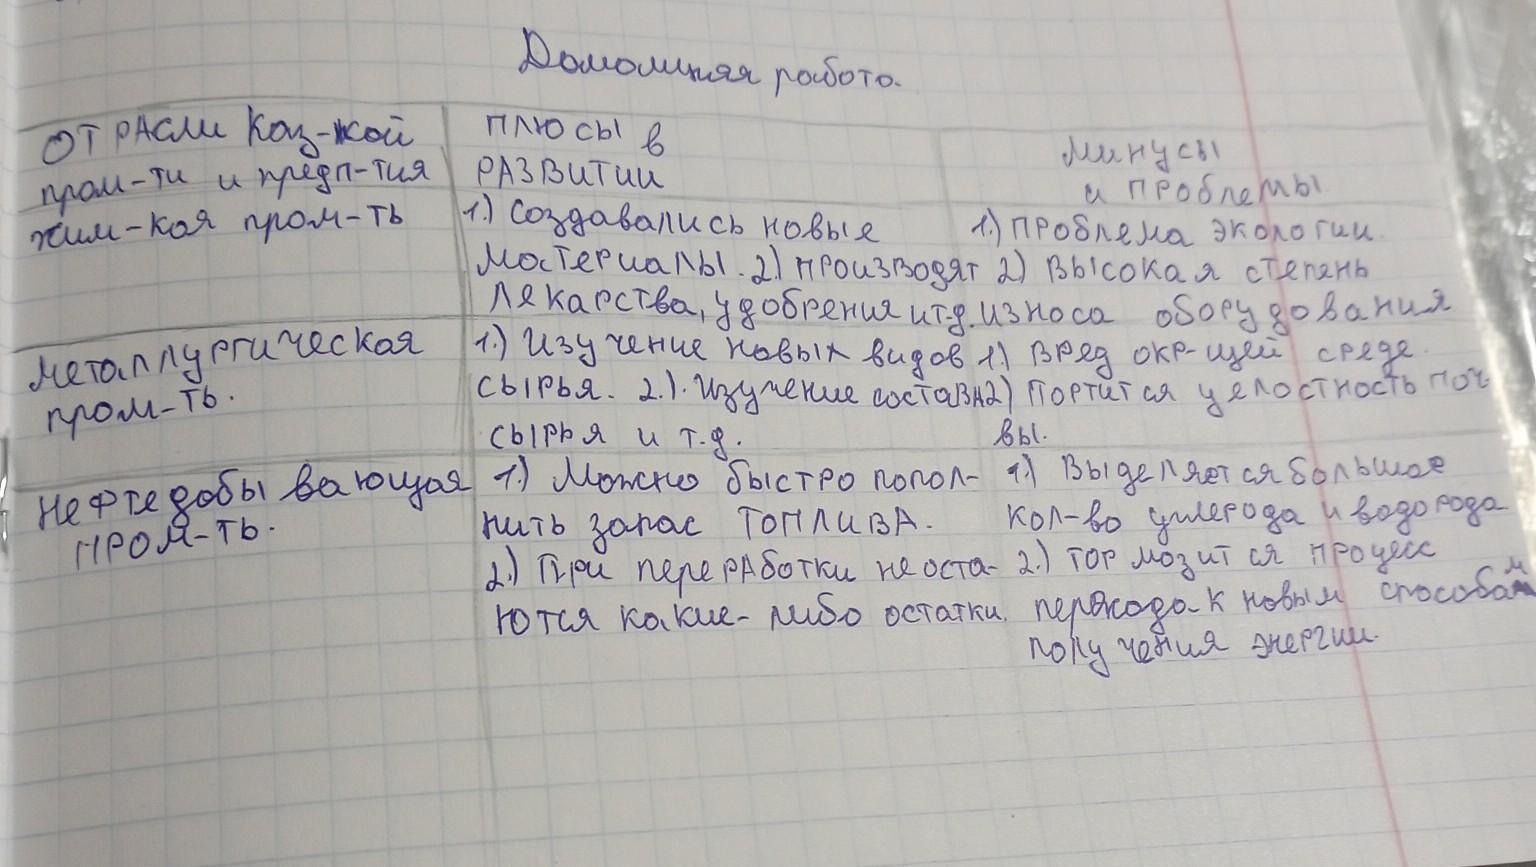 Домашняя работа.
ОТРАСЛИ Каз-кой
пром-ти и предп-тия
ПЛЮСЫ в
РАЗВИТИИ
Минусы
и проблемы
хим-кая пром-ть
1.) Создавались новые
материалы. 2.) производят
лекарства, удобрения и т.д.
1.) Проблема экологии.
2) Высокая степень
износа оборудования
Металлургическая
пром-ть.
1.) Изучение новых видов
сырья. 2.). Изучение состава
сырья и т.д.
1) Вред окр-щей среде.
2) Портится целостность поч
вы.
Нефтедобывающая
пром-ть.
1.) Можно быстро попол-
нить запас топлива.
2.) При переработки не оста-
ются какие-либо остатки.
1.) Выделяется большое
кол-во углерода и водорода
2.) тормозится процесс
перехода к новым способам
получения энергии.